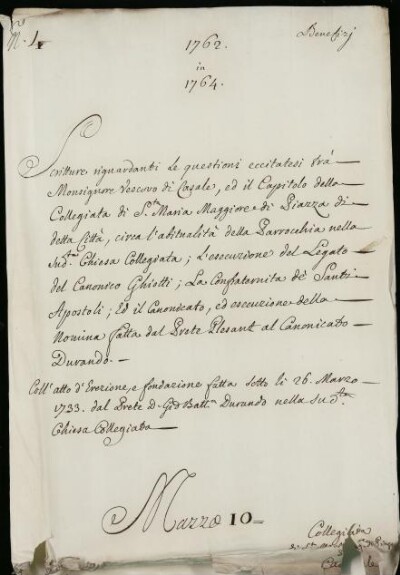 N.º 1
Benefizj
1762.
in
1764.
Scritture riguardanti le questioni eccitatesi trà
Monsignore Vescovo di Casale, ed il Capitolo della
Collegiata di S.ta Maria Maggiore di Piazza di
detta Città, circa l'attualità della Parrocchia nella
Sud.ta Chiesa Collegiata; L'esecuzione del Legato
del Canonico Ghiotti; La Confraternita de' Santi
Apostoli; Ed il Canonicato, ed esecuzione della
Nomina fatta dal Prete Plesant al Canonicato
Durando.
Coll'atto d'Erezione, e fondazione fatta sotto li 26. Marzo
1733. dal Prete D. Gio Batt.a Durando nella Sud.ta
Chiesa Collegiata
Mazzo 10
Collegiata
di S.ta